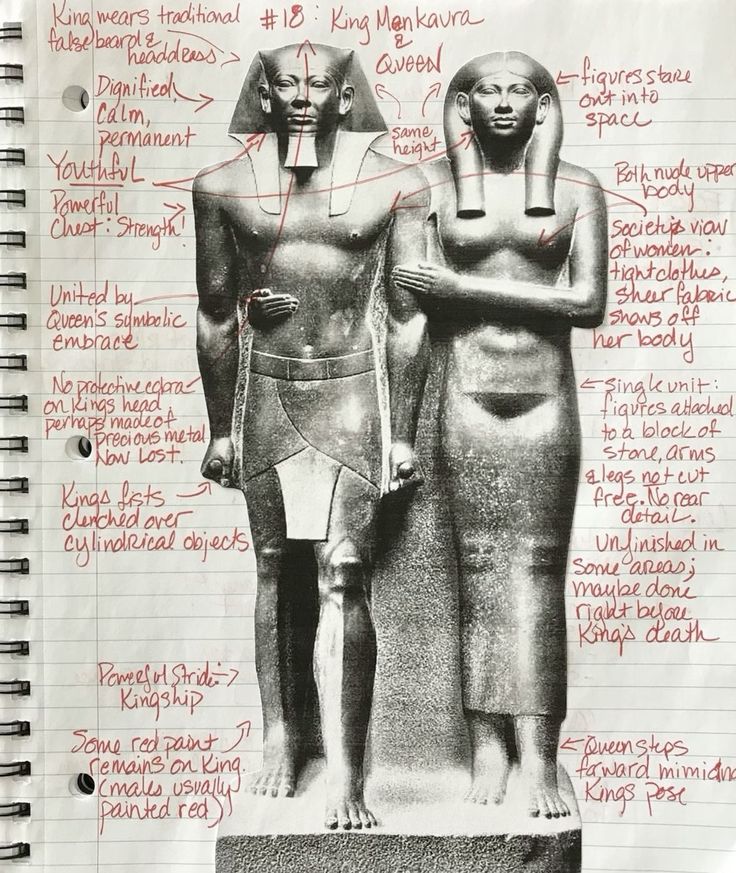 King wears traditional
false beard &
headdress
#18: King Menkaura
&
QUEEN
Dignified,
calm,
permanent
same
height
figures stare
out into
space
Youthful
Both nude upper
body
Powerful
Chest: Strength!
Society's view
of women:
tight clothes,
sheer fabric
shows off
her body
United by
Queen's symbolic
embrace
No protective cobra
on Kings head,
perhaps made of
precious metal
Now Lost.
Single unit:
figures attached
to a block of
stone, arms
& legs not cut
free. No rear
detail.
Kings fists
clenched over
cylindrical objects
Unfinished in
some areas;
maybe done
right before
King's death
Powerful Stride:
Kingship
Some red paint
remains on King.
(males usually
painted red)
Queen steps
forward mimicing
Kings pose